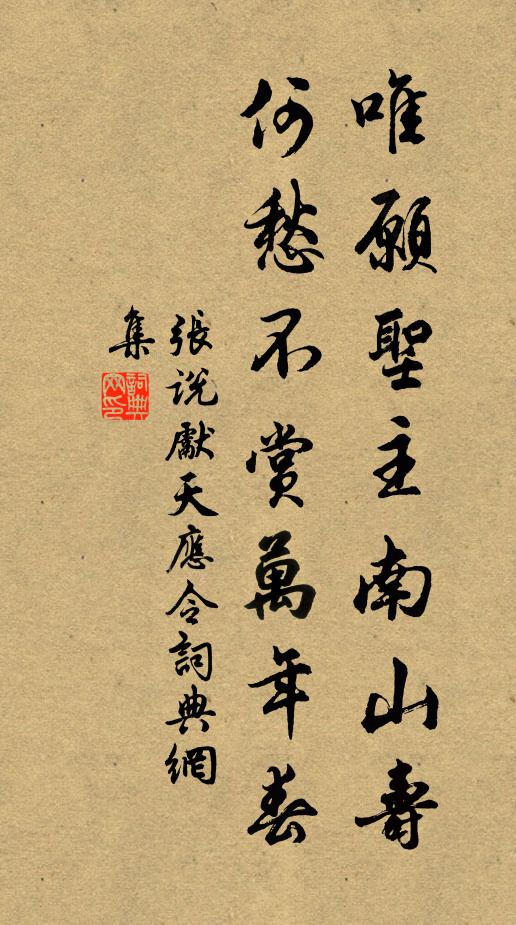 唯願聖主南山壽
何愁不賞萬年春
張說獻天應令詞典網
集
詞典
网印